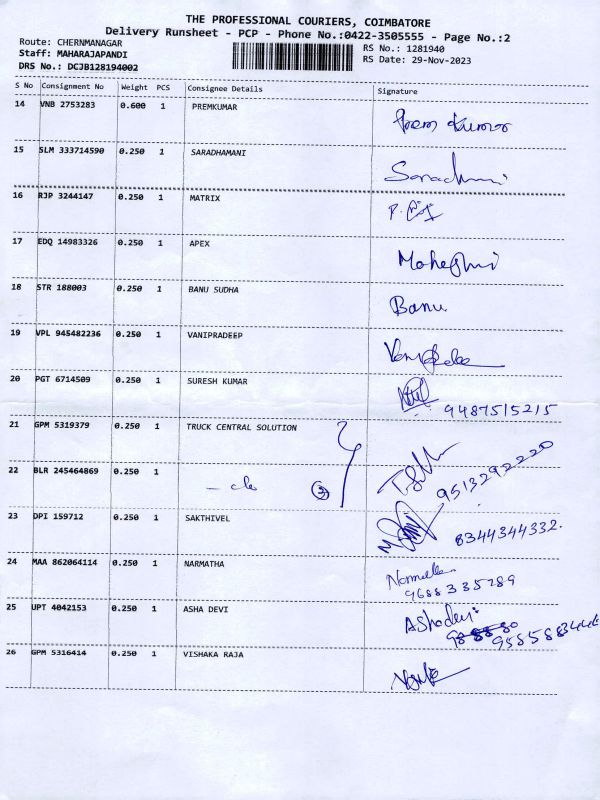 THE PROFESSIONAL COURIERS, COIMBATORE
Delivery Runsheet - PCP - Phone No.:0422-3505555 - Page No.:2
Route: CHERNMANAGAR
RS No.: 1281940
Staff: MAHARAJAPANDI
RS Date: 29-Nov-2023
DRS No.: DCJB128194002
S No Consignment No Weight PCS Consignee Details Signature
14 VNB 2753283 0.600 1 PREMKUMAR Prem Kumar
15 SLM 333714590 0.250 1 SARADHAMANI
16 RJP 3244147 0.250 1 MATRIX
17 EDQ 14983326 0.250 1 APEX
18 STR 188003 0.250 1 BANU SUDHA Banu
19 VPL 945482236 0.250 1 VANIPRADEEP
20 PGT 6714509 0.250 1 SURESH KUMAR
9487515215
21 GPM 5319379 0.250 1 TRUCK CENTRAL SOLUTION
22 BLR 245464869 0.250 1
9513292220
23 DPI 159712 0.250 1 SAKTHIVEL
8344344332.
24 MAA 862064114 0.250 1 NARMATHA
9688335789
25 UPT 4042153 0.250 1 ASHA DEVI Ashadevi
26 GPM 5316414 0.250 1 VISHAKA RAJA